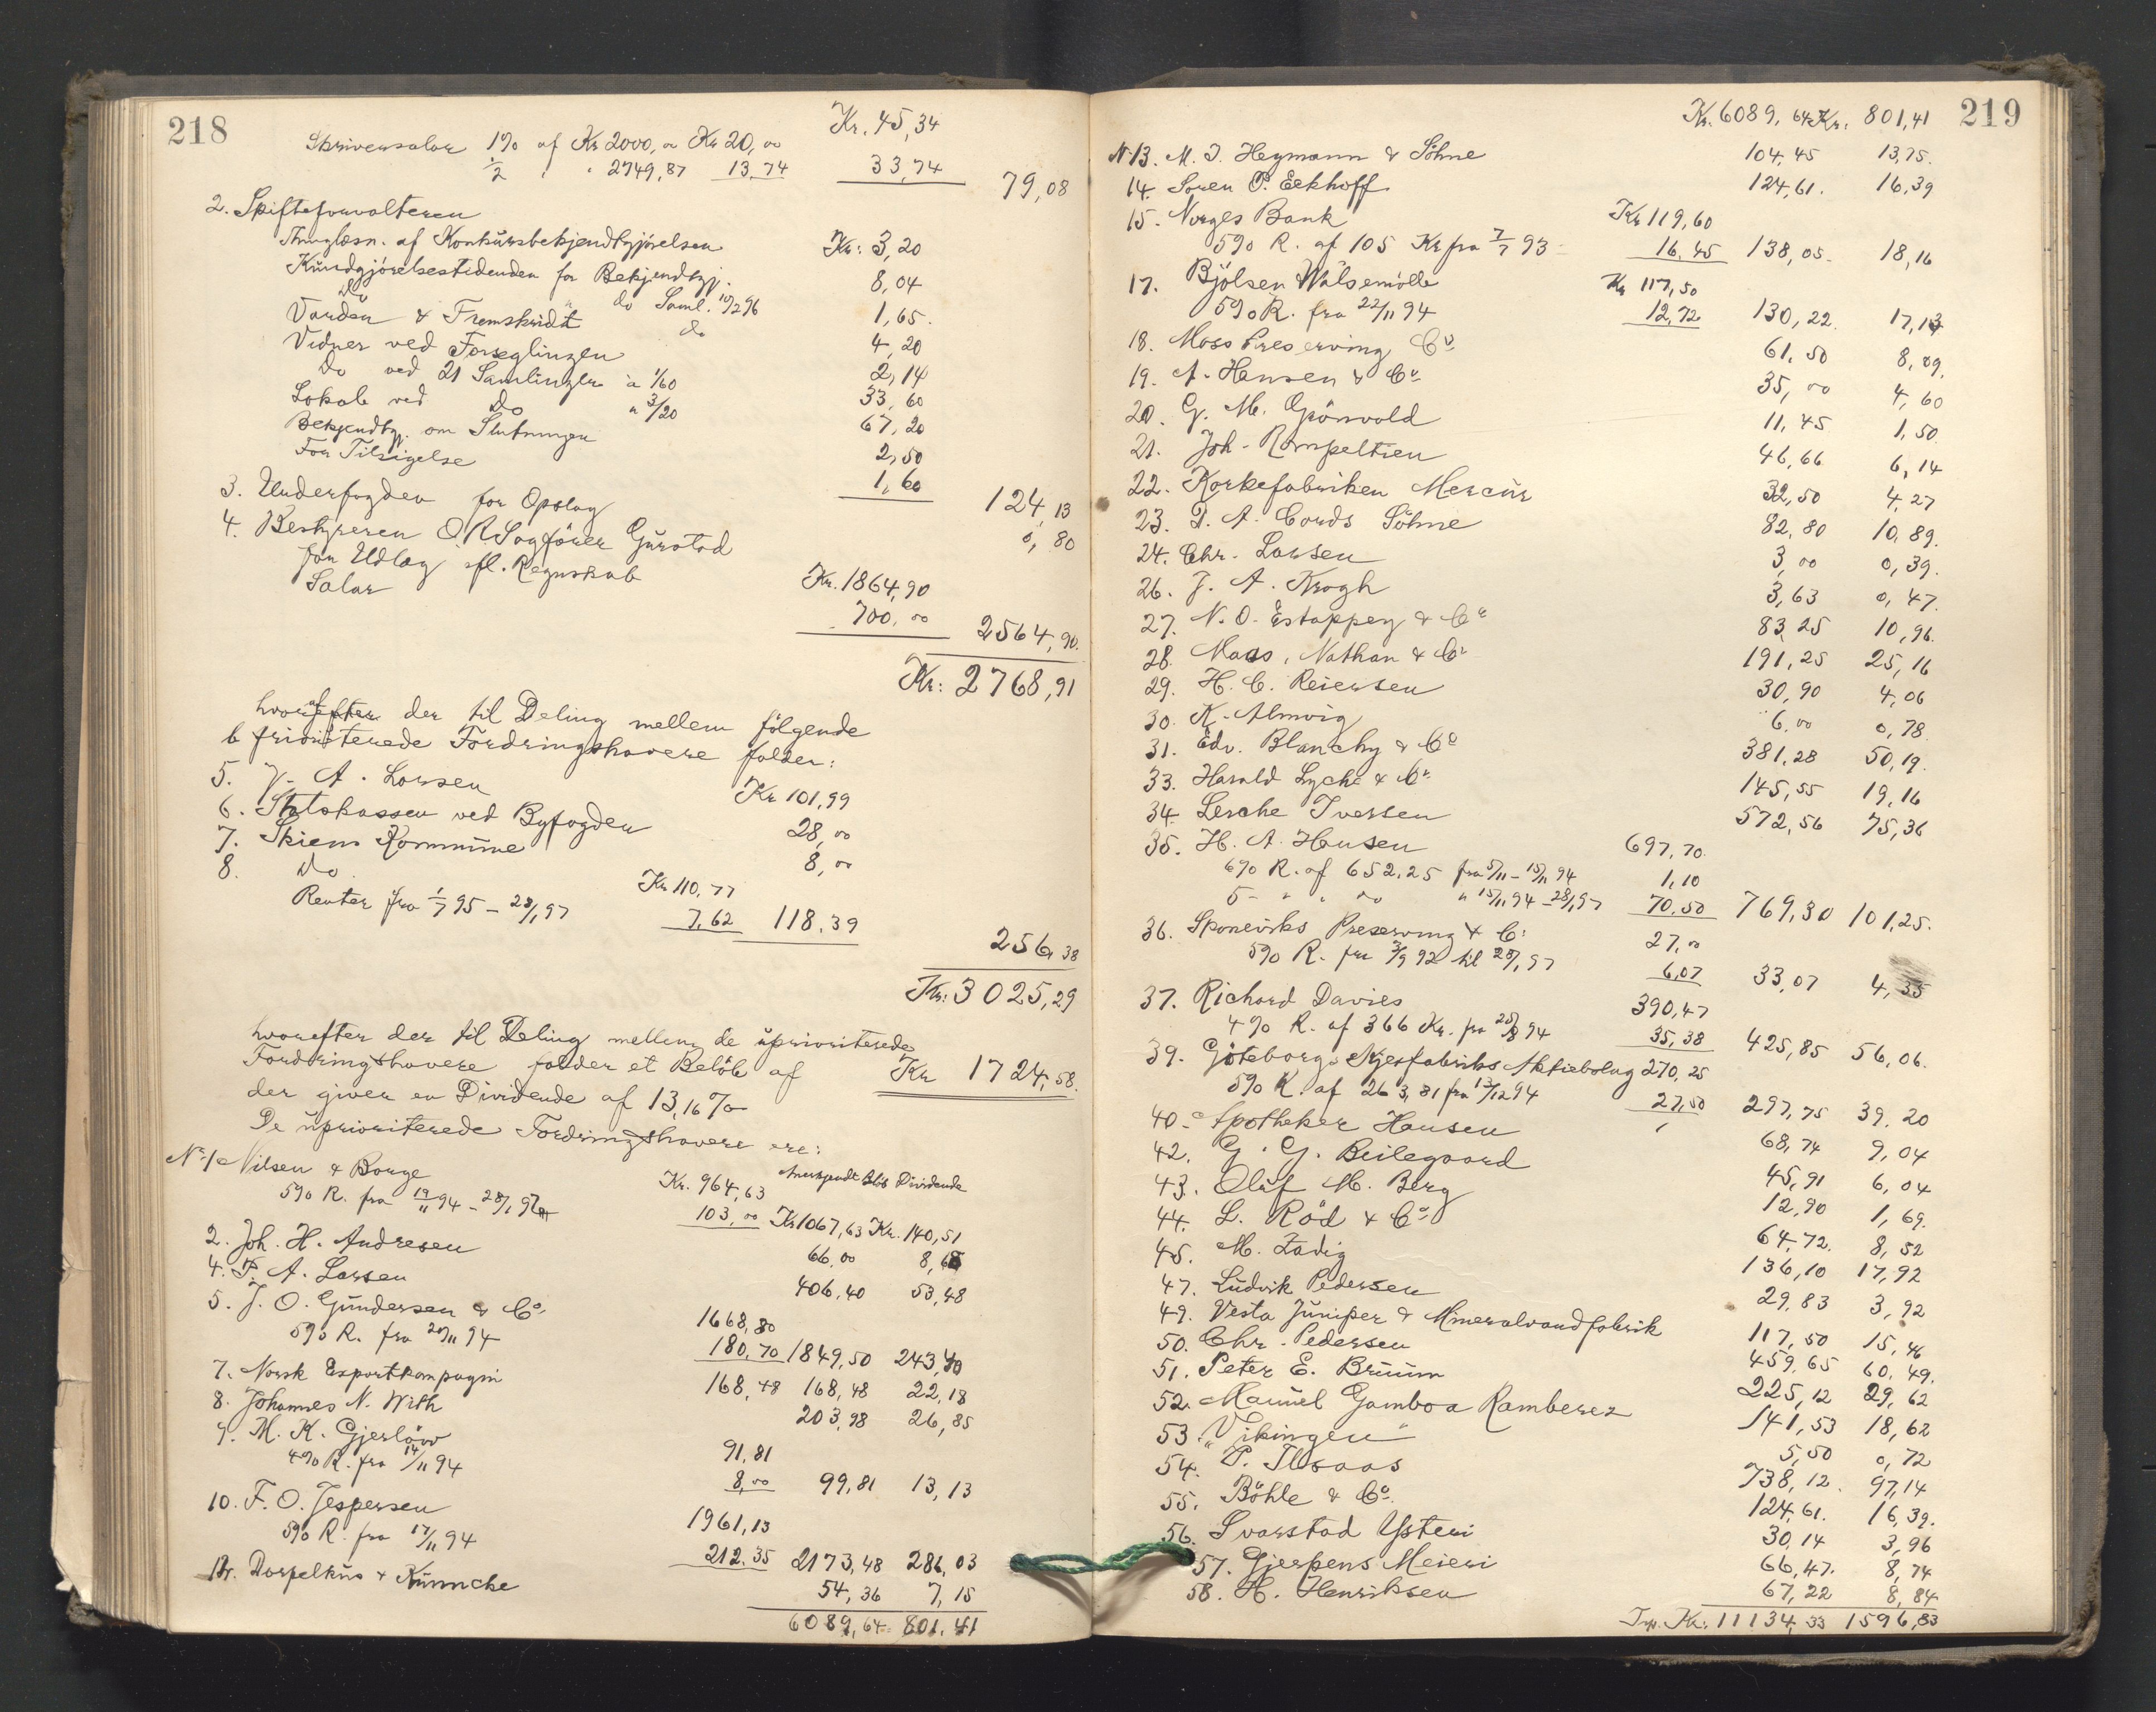 218
Kr. 45,34
Skriversalær 1% af Kr 2000,00 Kr 20,00
1/2 " " 2749,87 13,74 33,74 79,08
2. Skifteforvalteren
Thinglæsn. af Konkursbekjendtgjørelsen Kr: 3,20
Kundgjørelsestidenden for Bekjendtgj. 8,04
Do " do Saml. 10/2 96 1,65.
Varden & Fremskridt do 4,20
Vidner ved Forseglingen 2,14
Do ved 21 Samlinger a 1/60 33,60
Lokale ved Do " 3/20 67,20
Bekjendtgj. om Slutningen 2,50
For Tilsigelse 1,60 124,13
3. Underfogden for Opslag 0,80
4. Bestyreren O.R.Sagfører Gurstad
for Udlæg ifl. Regnskab Kr. 1864,90
Salær 700,00 2564,90.
Kr: 2768,91
hvorefter der til Deling mellem følgende
6 prioriterede Fordringshavere falder:
5. J. A. Larsen Kr 101,99
6. Statskassen ved Byfogden 28,00
7. Skiens Kommune 8,00
8. Do Kr 110,77
Renter fra 1/7 95 – 28/1 97 7,62 118,39
256,38
Kr: 3025,29
hvorefter der til Deling mellem de uprioriterede
Fordringshavere falder et Beløb af Kr 1724,58.
der giver en Dividende af 13,16 %
De uprioriterede Fordringshavere ere:
Anerkjendt Bløb Dividende
No 1 Nilsen & Borge Kr. 964,63
5% R. fra 19/11 94 – 28/1 97 103,00 Kr 1067,63 Kr. 140,51
2. Joh. H. Andresen 66,00 8,68
4. F. A. Larsen 406,40 53,48
5. J. O. Gundersen & Co. 1668,80
5% R. fra 20/11 94 180,70 1849,50 243,40
7. Norsk Exportkompagni 168,48 168,48 22,18
8. Johannes N. With 203,98 26,85
9. M. K. Gjerløw 91,81
4% R. fra 14/11 94 8,00 99,81 13,13
10. F. O. Jespersen 1961,13
5% R. fra 17/11 94 212,35 2173,48 286,03
12. Dorpelkus & Kunnche 54,36 7,15
6089,64 801,41
219
Kr. 6089,64 Kr. 801,41
No 13. M. J. Heymann & Söhne 104,45 13,75.
14. Soren P. Eckhoff 124,61. 16,39
15. Norges Bank Kr 119,60
5% R. af 105 Kr fra 7/7 93 16,45 138,05 18,16
17. Bjölsen Walsemölle Kr 117,50
5% R. fra 22/11 94 12,72 130,22 17,13
18. Moss Preserving Co 61,50 8,09.
19. A. Hansen & Co 35,00 4,60
20. G. M. Grönvold 11,45 1,50
21. Joh. Rompeltien 46,66 6,14
22. Korkefabriken Mercur 32,50 4,27
23. D. A. Cords Söhne 82,80 10,89.
24. Chr. Larsen 3,00 0,39.
26. J. A. Krogh 3,63 0,47.
27. N. O. Estappey & Co 83,25 10,96.
28. Maas, Nathan & Co 191,25 25,16
29. H. C. Reiersen 30,90 4,06
30. K. Almvig 6,00 0,78
31. Edv. Blanchy & Co 381,28 50,19.
33. Harald Lyche & Co 145,55 19,16
34. Lerche Iversen 572,56 75,36
35. H. A. Hansen 697,70
6% R. af 652,25 fra 5/11 – 15/11 94 1,10
5 - " " do " 15/11 94 – 28/1 97 70,50 769,30 101,25.
36. Sponviks Preserving & Co 27,00
5% R. fra 3/9 92 til 28/1 97 6,07 33,07 4,35
37. Richard Davies 390,47
4% R. af 366 Kr. fra 28/8 94 35,38 425,85 56,06.
39. Göteborgs Kjexfabriks Aktiebolag 270,25
5% R. af 263,81 fra 13/12 94 27,50 297,75 39,20
40. Apotheker Hansen 68,74 9,04
42. G. G. Beilegaard 45,91 6,04
43. Oluf M. Berg 12,90 1,69.
44. L. Röd & Co 64,72. 8,52
45. M. Zadig 136,10 17,92
47. Ludvik Pedersen 29,83 3,92
49. Vesta Juniper & Mineralvandfabrik 117,50 15,46
50. Chr. Pedersen 459,65 60,49.
51. Peter E. Bruum 225,12 29,62
52. Manuel Gamboa Ramberez 141,53 18,62
53. "Vikingen" 5,50 0,72
54. P. Ilsaas 738,12. 97,14
55. Böhle & Co. 124,61. 16,39.
56. Svarstad Ysteri 30,14 3,96
57. Gjerpens Meieri 66,47. 8,74
58. H. Henriksen 67,22 8,84
Trp. Kr: 11134,33 1596,83